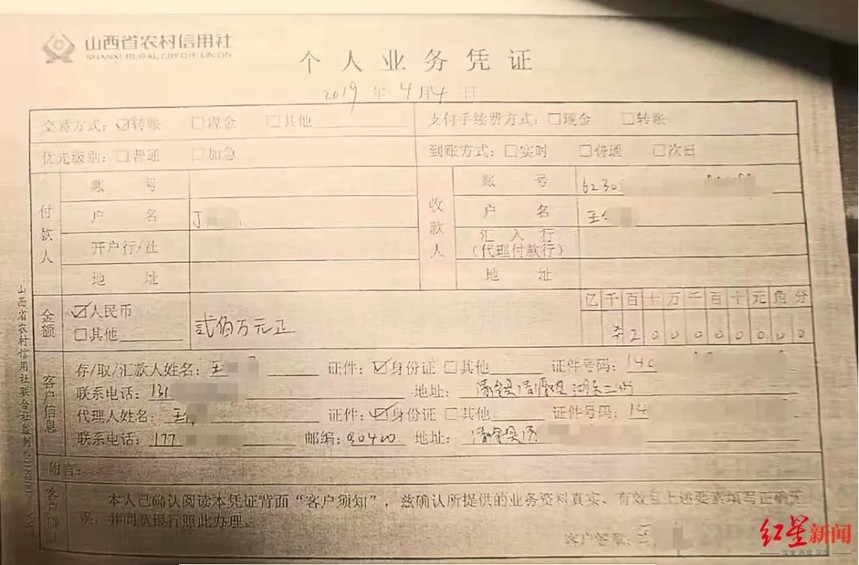 山西省农村信用社
SHANXI RURAL CREDIT UNION
个人业务凭证
2019 年 4 月 4 日
交易方式：☑转账 □现金 □其他 支付手续费方式：□现金 □转账
优先级别：□普通 □加急 到账方式：□实时 □普通 □次日
付款人 账 号 收款人 账 号 6230
户 名 户 名 王
开户行/社 汇入行（代理付款行）
地 址 地 址
金额 ☑人民币 □其他 贰佰万元正 亿千百十万千百十元角分
200000000
客户信息 存/取/汇款人姓名：王 证件：☑身份证 □其他 证件号码：14
联系电话：131 地址：
代理人姓名：王 证件：☑身份证 □其他 证件号码：14
联系电话：177 邮编： 地址：
附言：
客户确认 本人已确认阅读本凭证背面“客户须知”，兹确认所提供的业务资料真实、有效且上述要素填写正确无
误，并同意银行照此办理。
客户签章：
山西省农村信用社联合社监制
红星新闻